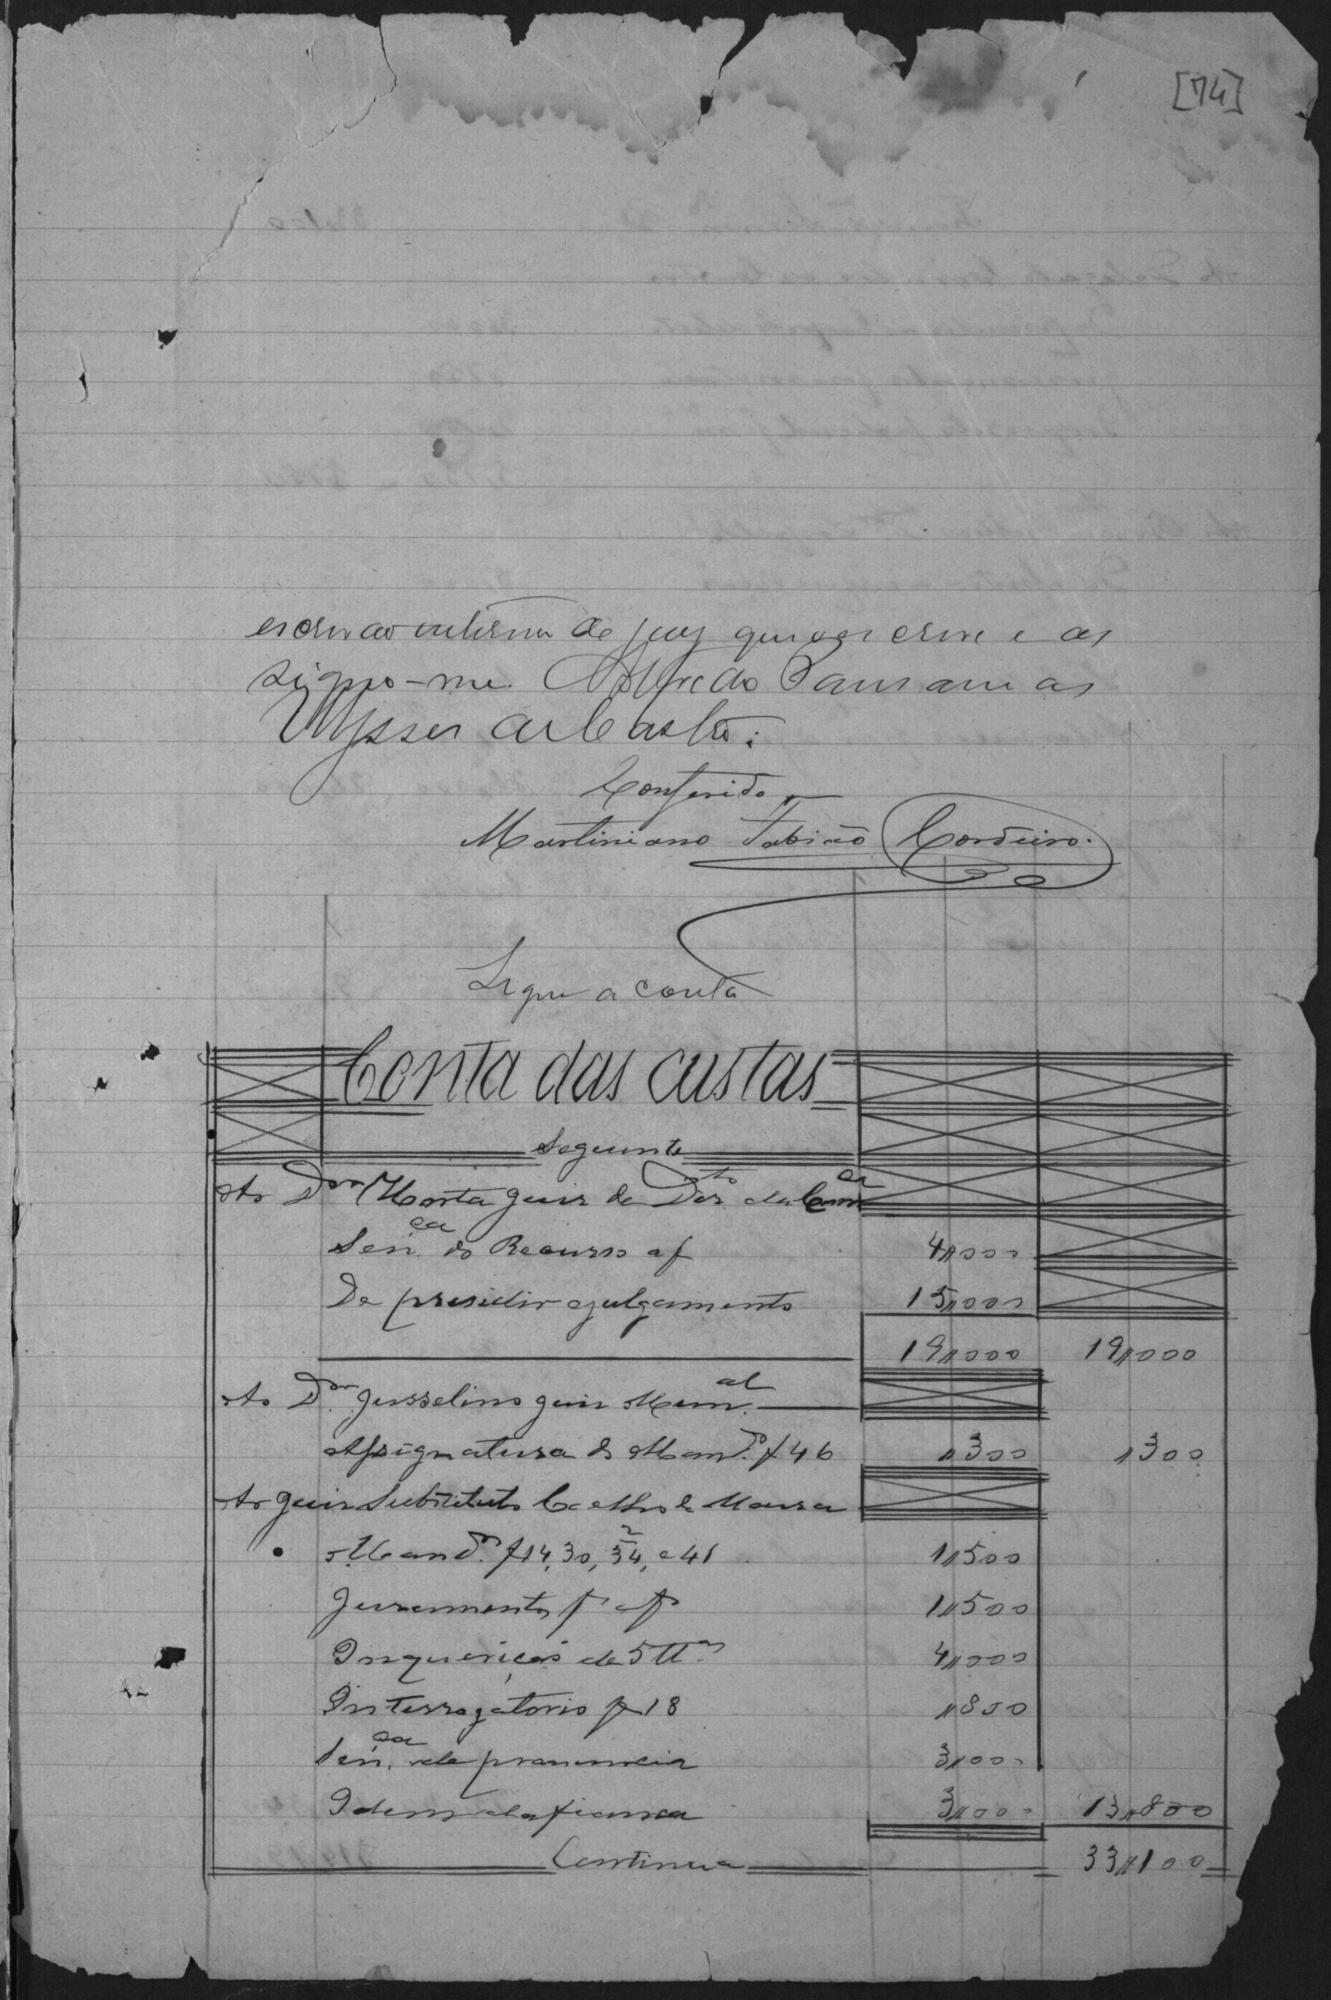 [74]
escrivão interino de jury que o escrevi e as
signo-me. Alfredo Pausanias
Ulysses de Castro.
Conferido
Martiniano Fabião Cordeiro.
Segue a conta
Conta das custas
Seguinte
Ao Dor Horta juiz de Dirto da Comca
Senca do Recurso af 4,,000
De presidir o julgamento 15,,000
19,,000 19,,000
Ao Dor Jusselino juiz Munal
Assignatura do Mando f 46 ,,300 ,,300
Ao juiz Substituto Coelho de Moura
Mandos f 14, 30, 34, e 41 1,,500
Juramentos 1,,500
Inquerições de 5 ttas 4,,000
Interrogatorio f 18 ,,800
Senca de pronuncia 3,,000
Idem da fiança 3,,000 13,,800
Continua 33,,100